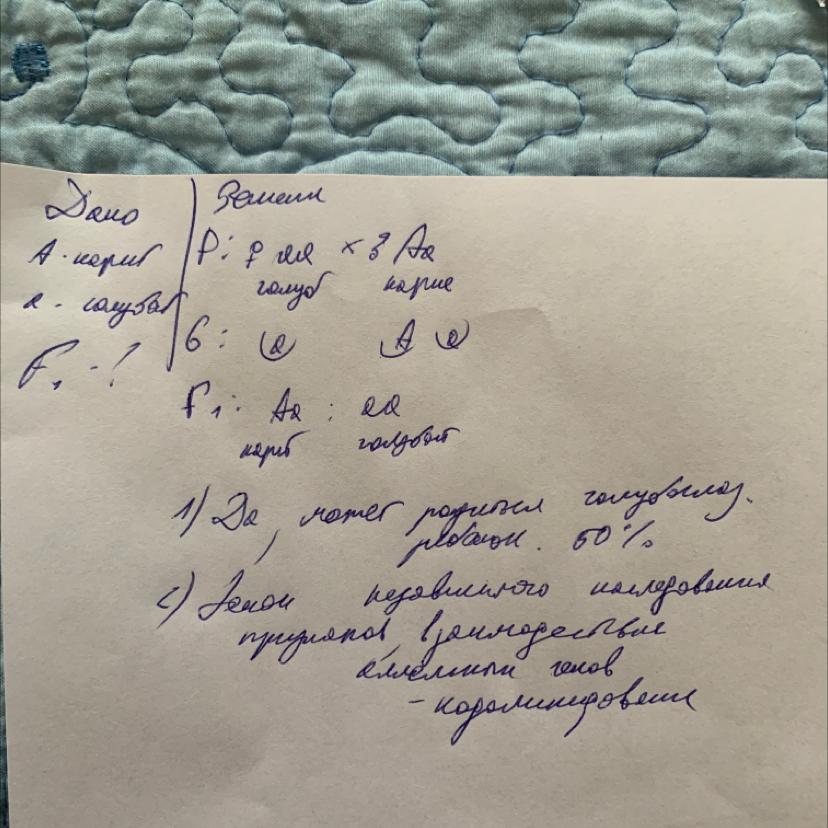 Дано
А - карие
а - голубые
F₁ - ?
Решение
P: ♀ аа × ♂ Аа
голуб карие
G: а А а
F₁: Аа : аа
карие голубые
1) Да, может родиться голубоглаз.
ребёнок. 50%
2) Закон независимого наследования
признаков, взаимодействие
аллельных генов
- кодоминирование